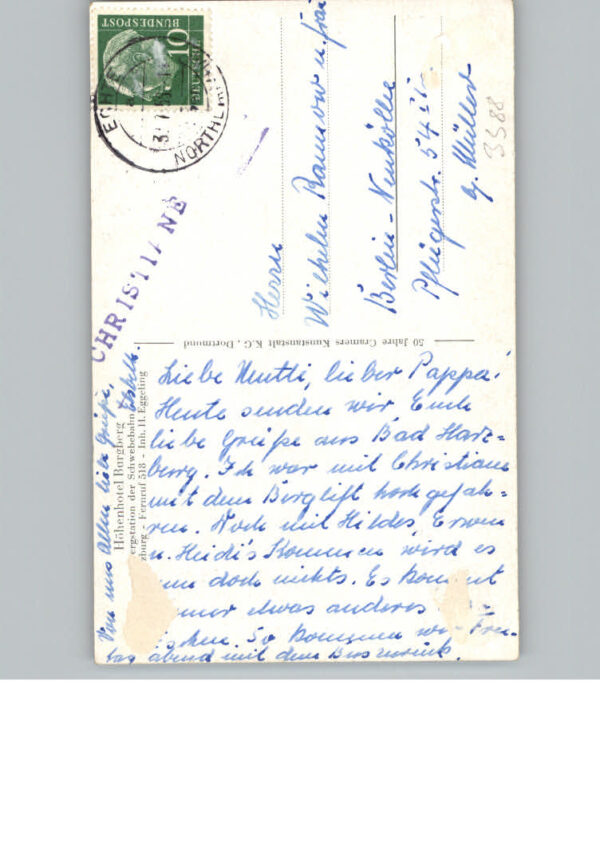 10
DEUTSCHE
BUNDESPOST
NORTHEIM
CHRISTIANE
Herrn
Wilhelm Rannow u. Frau
Berlin-Neukölln
Pflügerstr. 54
b. Müller
3388
50 Jahre Cramers Kunstanstalt K.G., Dortmund
Höhenhotel Burgberg
ergstation der Schwebebahn
zburg - Fernruf 518 - Inh. H. Eggeling
Liebe Mutti, lieber Pappa!
Heute senden wir Euch
liebe Grüße aus Bad Harz=
burg. Ich war mit Christiane
mit dem Berglift hoch gefah=
ren. Noch mit Hildes, Erwin
u. Heidi's Kommen wird es
nun doch nichts. Es kommt
mer etwas anderes
schen. So kommen wir Frei-
tag abend mit dem Bus zurück.
Von uns Allen liebe Grüße,